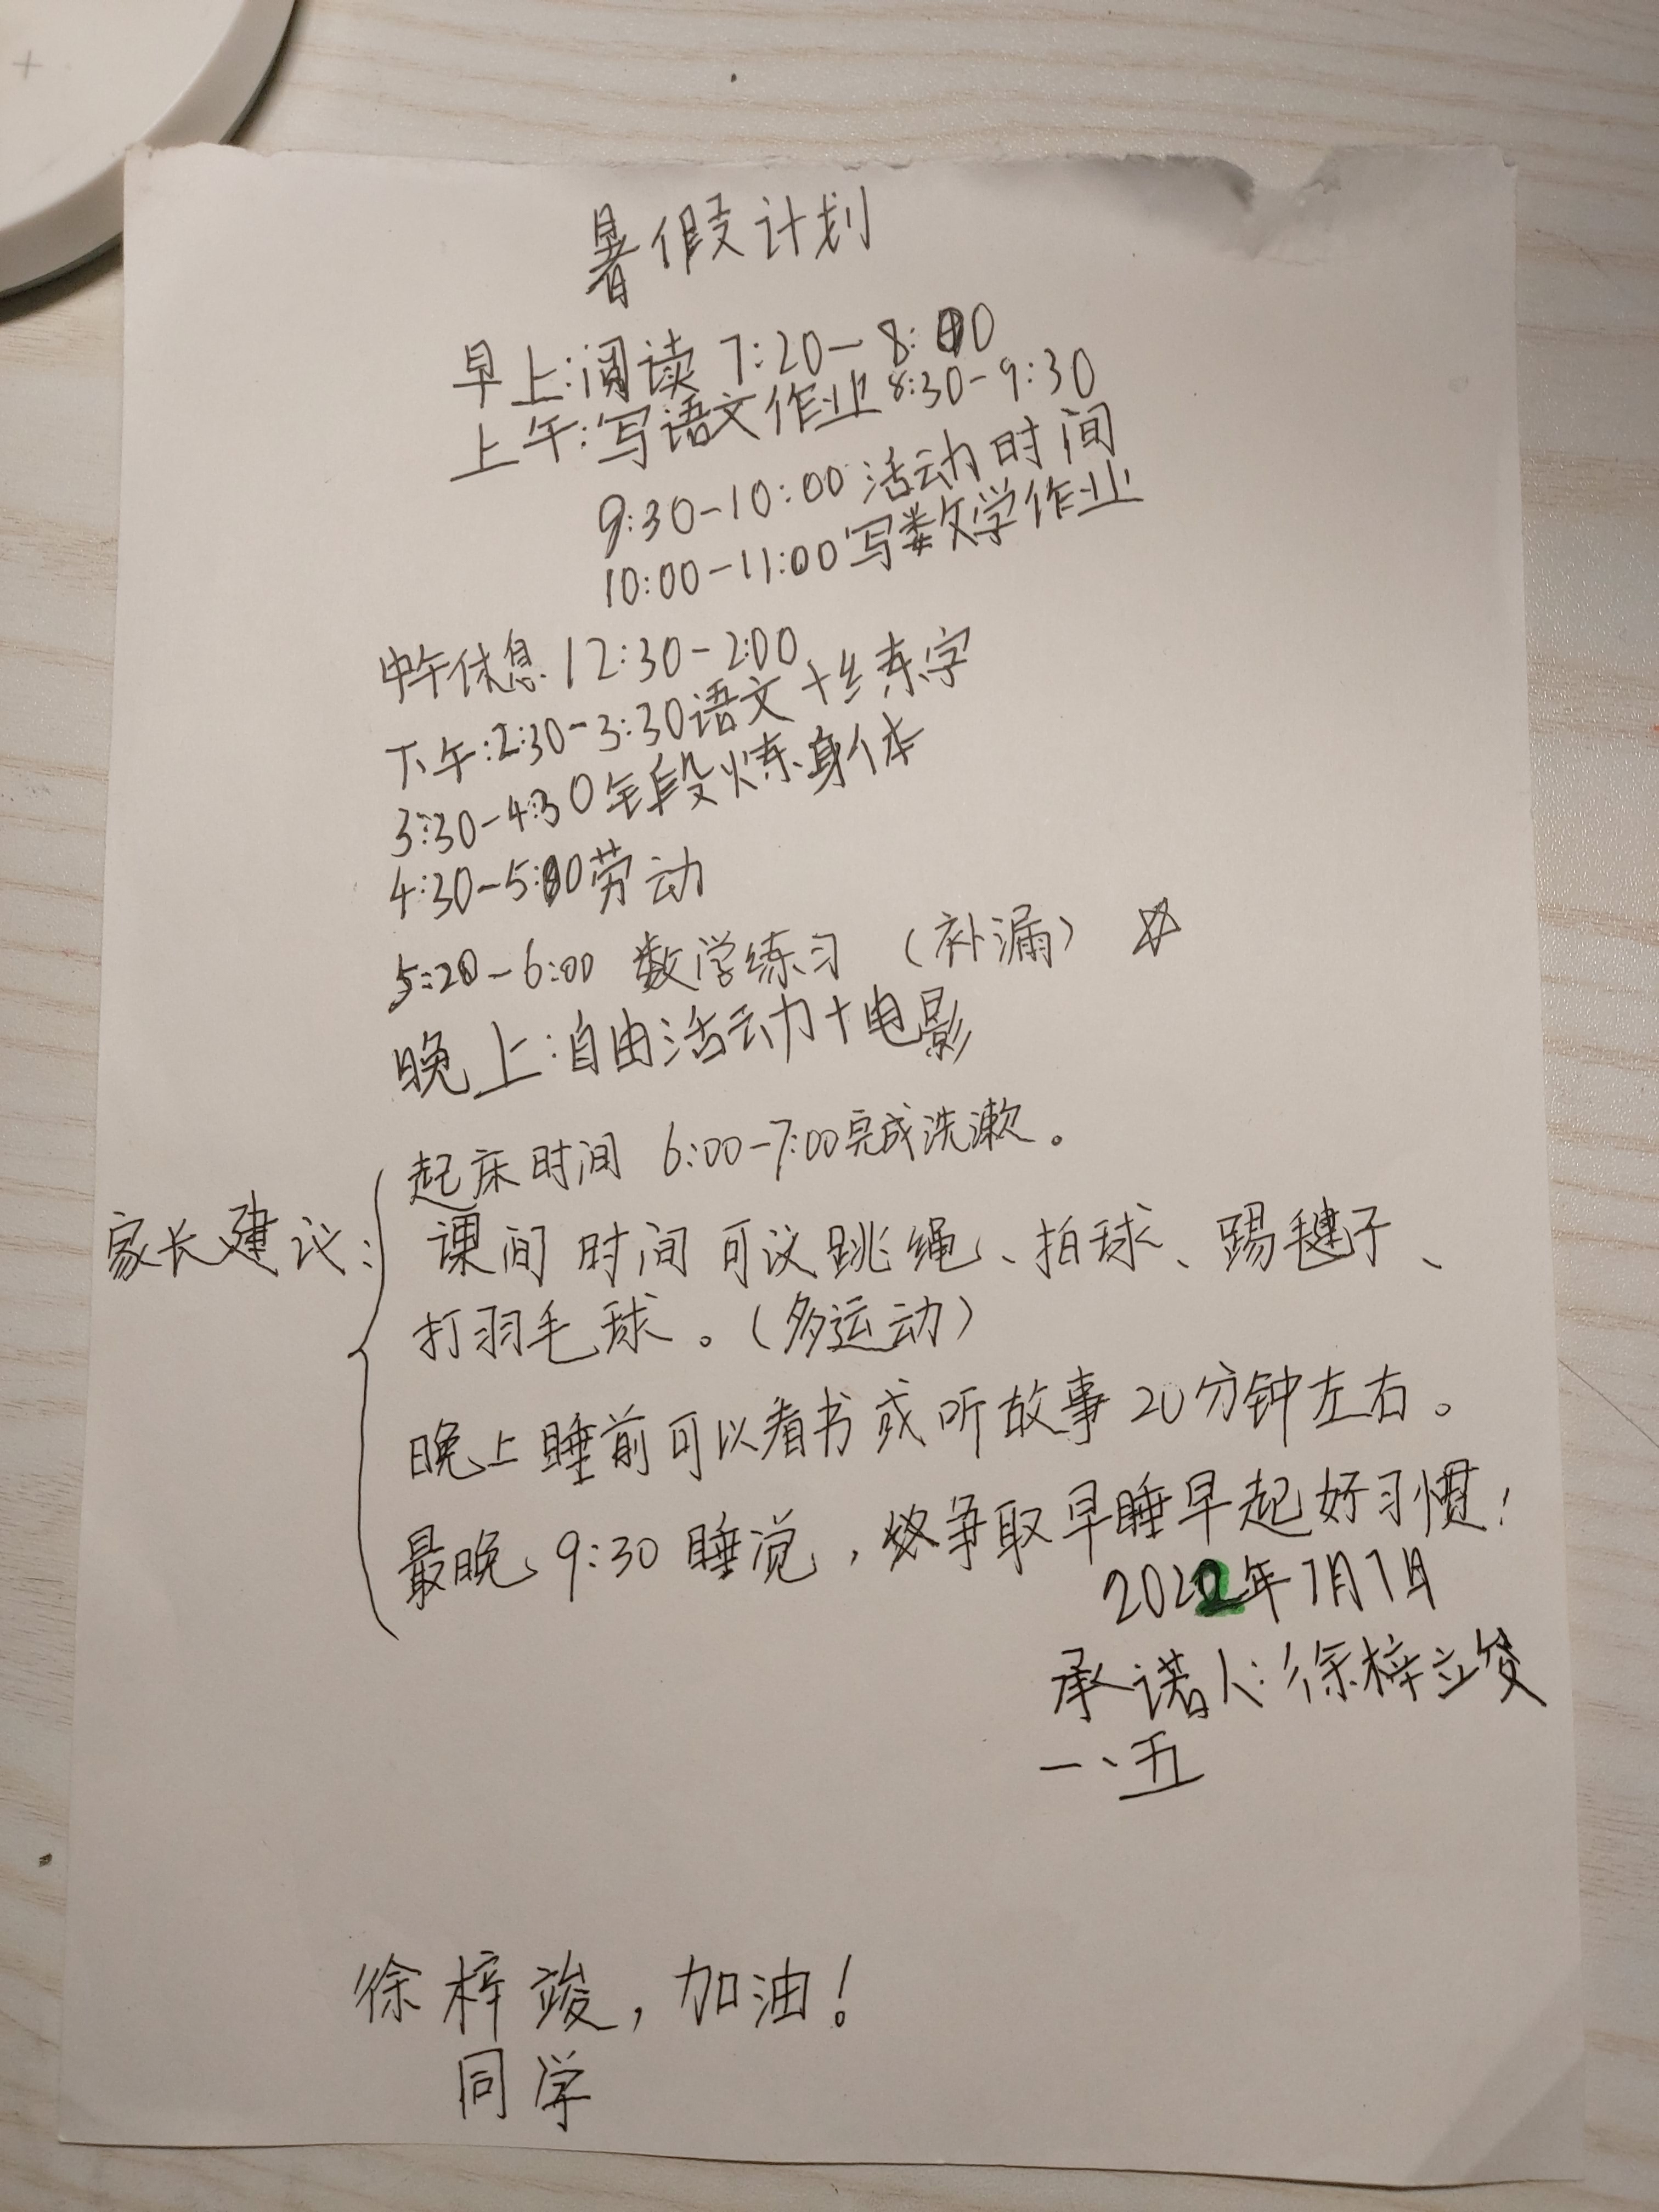 暑假计划
早上:阅读 7:20-8:00
上午:写语文作业 8:30-9:30
9:30-10:00 活动时间
10:00-11:00 写数学作业
中午休息 12:30-2:00
下午:2:30-3:30 语文+练字
3:30-4:30 锻炼身体
4:30-5:00 劳动
5:20-6:00 数学练习 (补漏) ☆
晚上:自由活动+电影
起床时间 6:00-7:00 完成洗漱。
家长建议: 课间时间可以跳绳、拍球、踢毽子、
打羽毛球。(多运动)
晚上睡前可以看书或听故事20分钟左右。
最晚 9:30 睡觉,争取早睡早起好习惯!
2022年7月7日
承诺人:徐梓竣
一、五
徐梓竣,加油!
同学